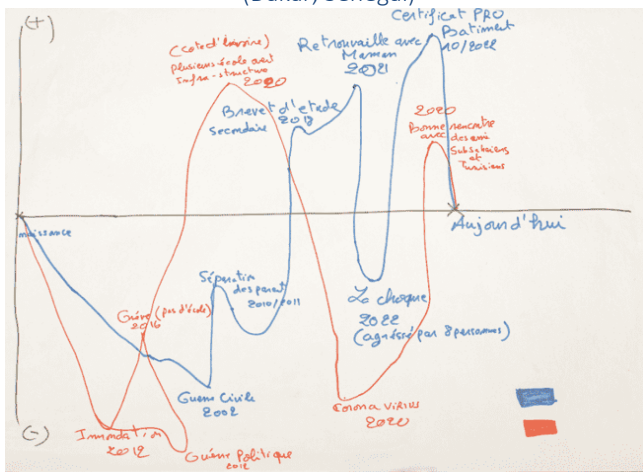 (Dakar, Sénégal)
(+)
(Cote d'Ivoire)
plusieurs école avec
Infra-structure
2020
Retrouvaille avec
Maman
2021
Certificat PRO
Batiment
10/2022
Brevet d'etude
secondaire
2018
2020
Bonne rencontre
avec des ami
Subsahariens
et
Tunisiens
naissance
Aujourd'hui
Séparation
des parent
2010/2011
Grève (pas d'école)
2016
Le choque
2022
(agréssé par 8 personnes)
Guerre Civile
2002
Corona virius
2020
(-)
Innondation
2012
Guérre Politique
2012